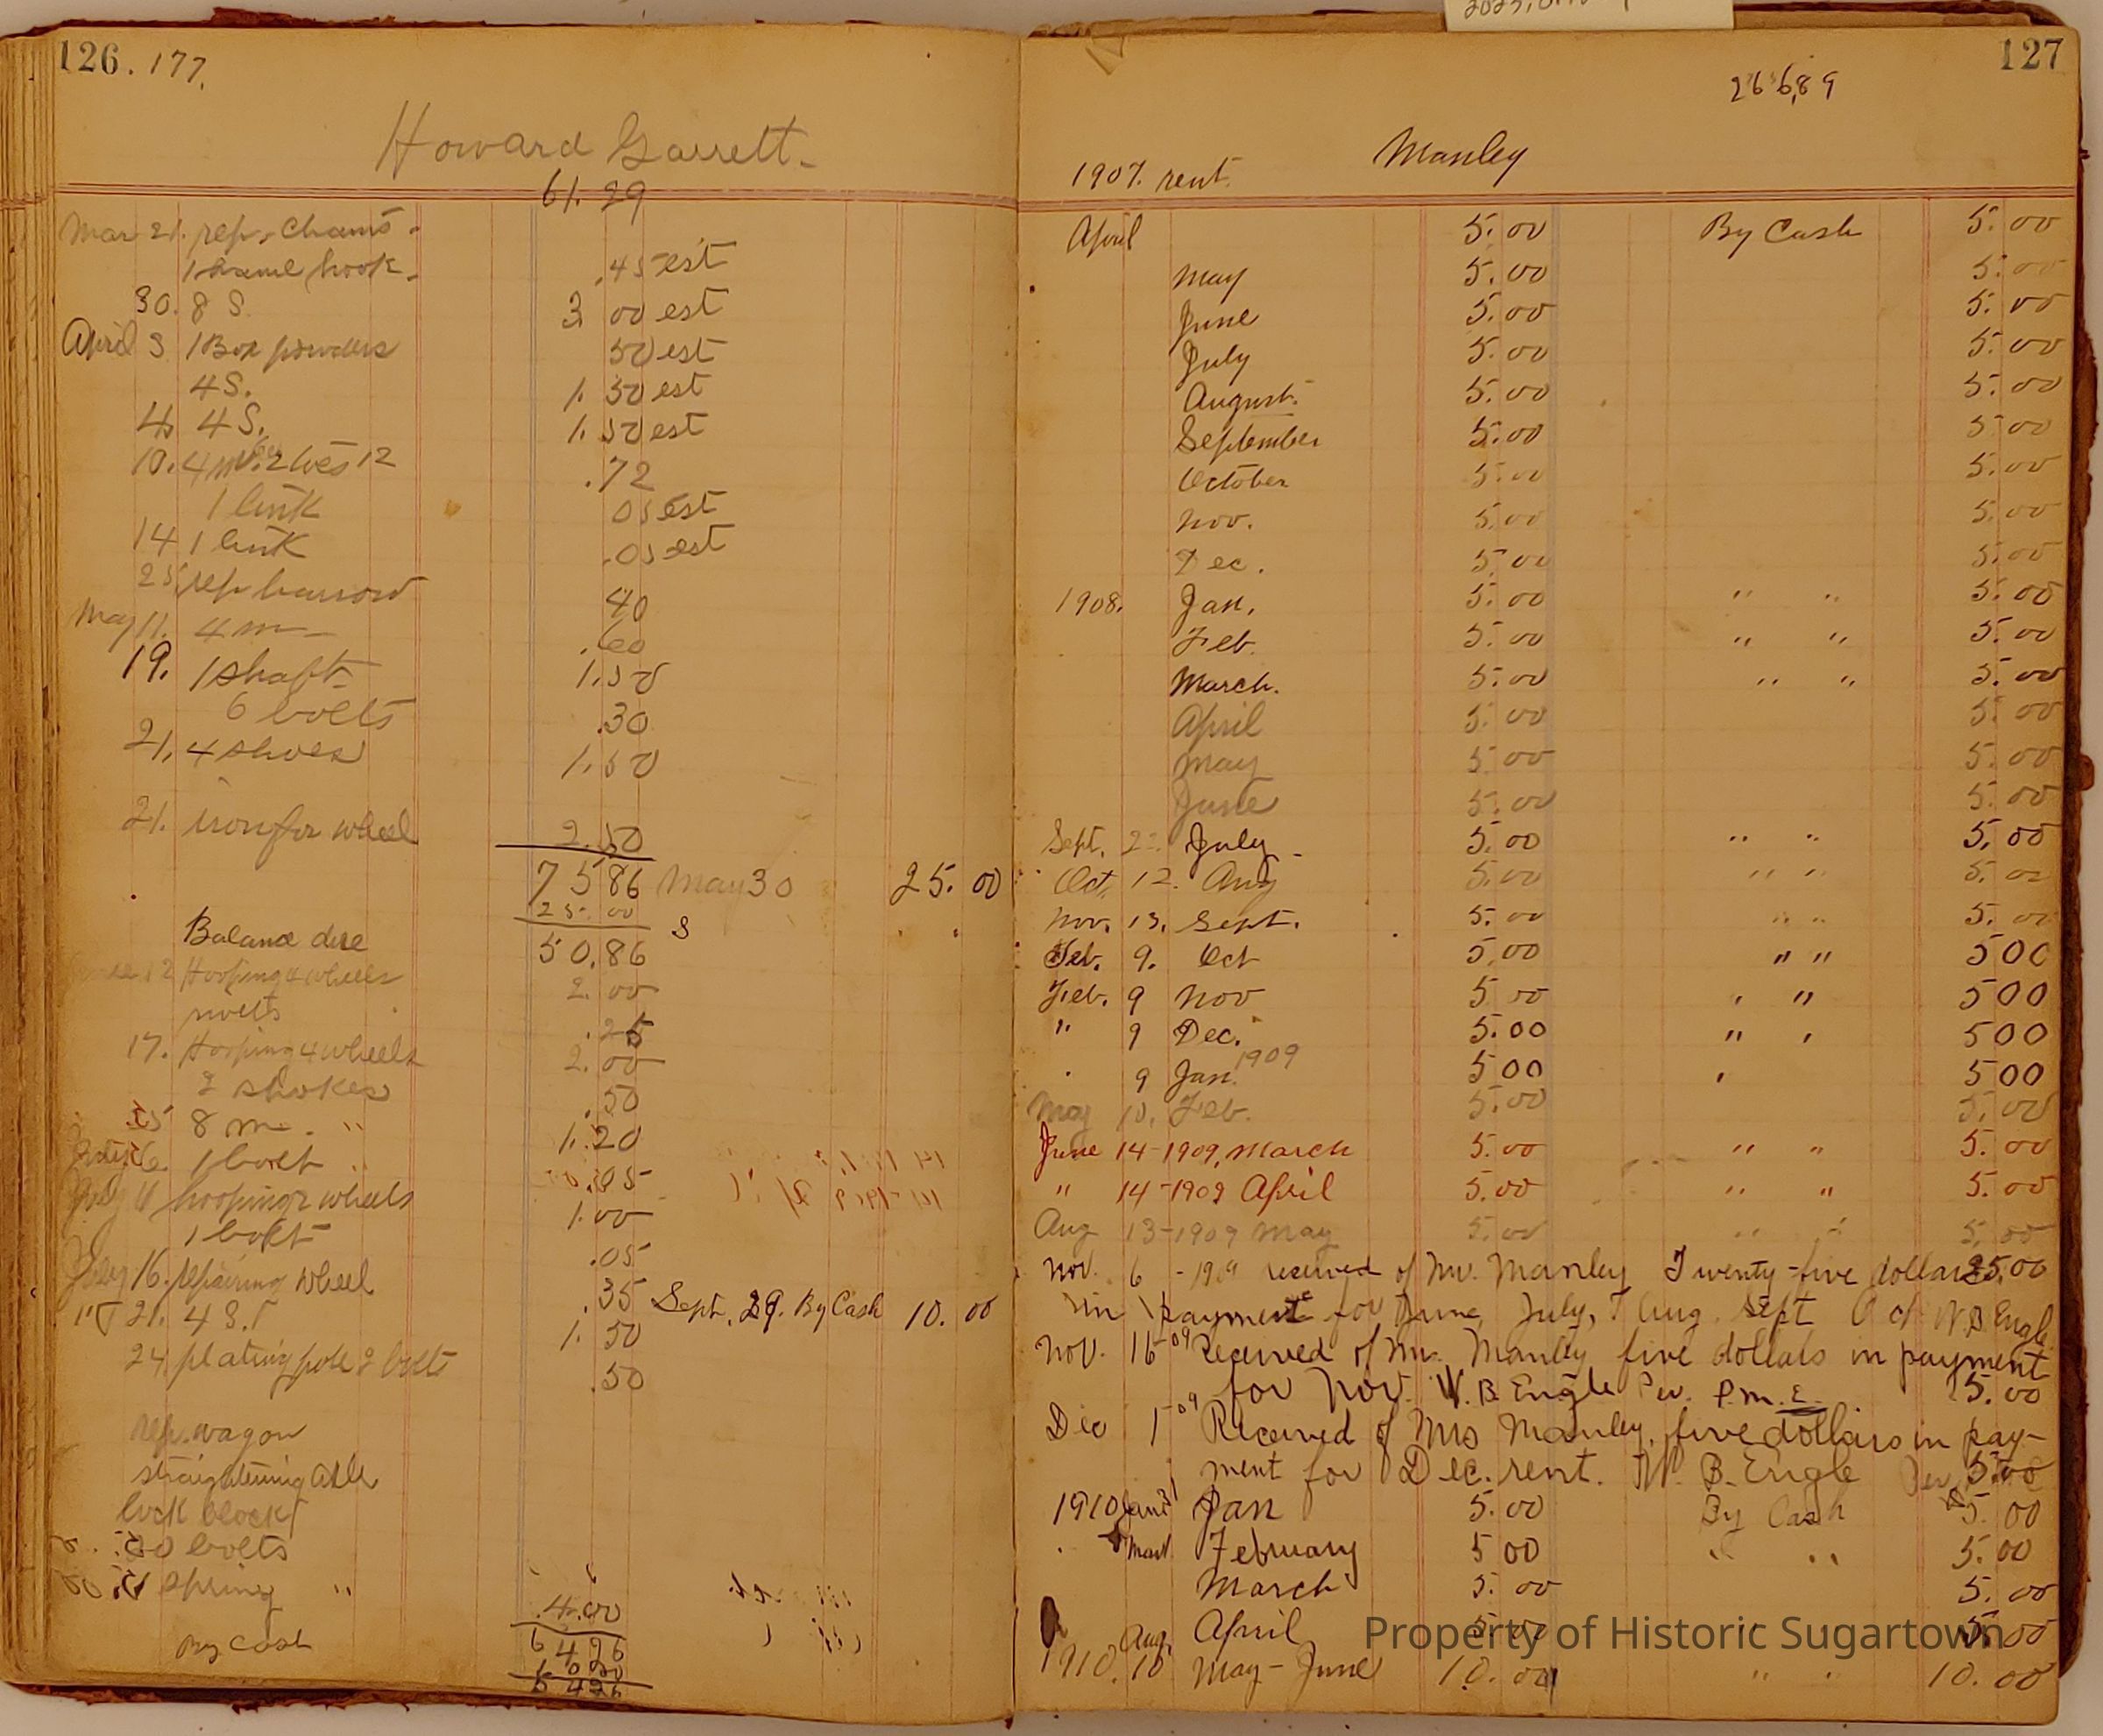 126. 177.
Howard Garrett
61.29
Mar 21. rep. Chains
1 hame hook .45 est
30. 8 S. 3 00 est
April 3 1 Box powders 50 est
4 S. 1.50 est
4 4 S. 1.50 est
10. 4 m 12 .72
1 link 05 est
14 1 link .05 est
25 rep harrow 40
May 11. 4 m .60
19. 1 shaft 1.50
6 bolts .30
21. 4 shoes 1.50
21. iron for wheel 2.50
75 86 May 30 25.00
25.00
S
Balance due 50.86
12 Hooping 4 wheels 2.00
.25
17. Hooping 4 wheels 2.00
2 spokes .50
25 8 m. " 1.20
1 bolt " .05
July 11 hooping 2 wheels 1.00
1 bolt .05
July 16. repairing wheel .35
21. 4 S. 1.50
Sept. 29. By Cash 10.00
24 plating pole 2 bolts .50
rep. wagon
straightening axle
lock block
bolts
spring "
4.00
64 26
By Cash 10 00
54 26
127
266,89
Manley
1907. rent.
April 5.00 By Cash 5.00
May 5.00 5.00
June 5.00 5.00
July 5.00 5.00
August. 5.00 5.00
September 5.00 5.00
October 5.00 5.00
Nov. 5.00 5.00
Dec. 5.00 5.00
1908. Jan. 5.00 " " 5.00
Feb. 5.00 " " 5.00
March. 5.00 " " 5.00
April 5.00 5.00
May 5.00 5.00
June 5.00 5.00
Sept. July 5.00 " " 5.00
Oct. 12. Aug 5.00 " " 5.00
Nov. 13. Sept. 5.00 " " 5.00
Feb. 9. Oct 5,00 " " 500
Feb. 9 Nov 5 00 " " 500
" 9 Dec. 5.00 " " 500
9 Jan. 1909 500 " 500
May 10. Feb. 5.00 5.00
June 14-1909, March 5.00 " " 5.00
" 14-1909 April 5.00 " " 5.00
Aug 13-1909 May 5.00 " " 5.00
Nov. 6 -1909 received of Mr. Manley Twenty-five dollars 25.00
in payment for June, July, Aug. Sept Oct W B Engle
Nov. 16-09 Received of Mr. Manley five dollars in payment
for Nov. W. B. Engle Per. P.M.E. 5.00
Dec 1-09 Received of Mrs Manley, five dollars in pay-
ment for Dec. rent. W. B. Engle Per 5.00
1910 Jan 31 Jan 5.00 By Cash 5.00
Mar February 5 00 " " 5.00
March 5.00 5.00
April 5.00 " 5.00
1910. Aug 10 May-June 10.00 " " 10.00
Property of Historic Sugartown